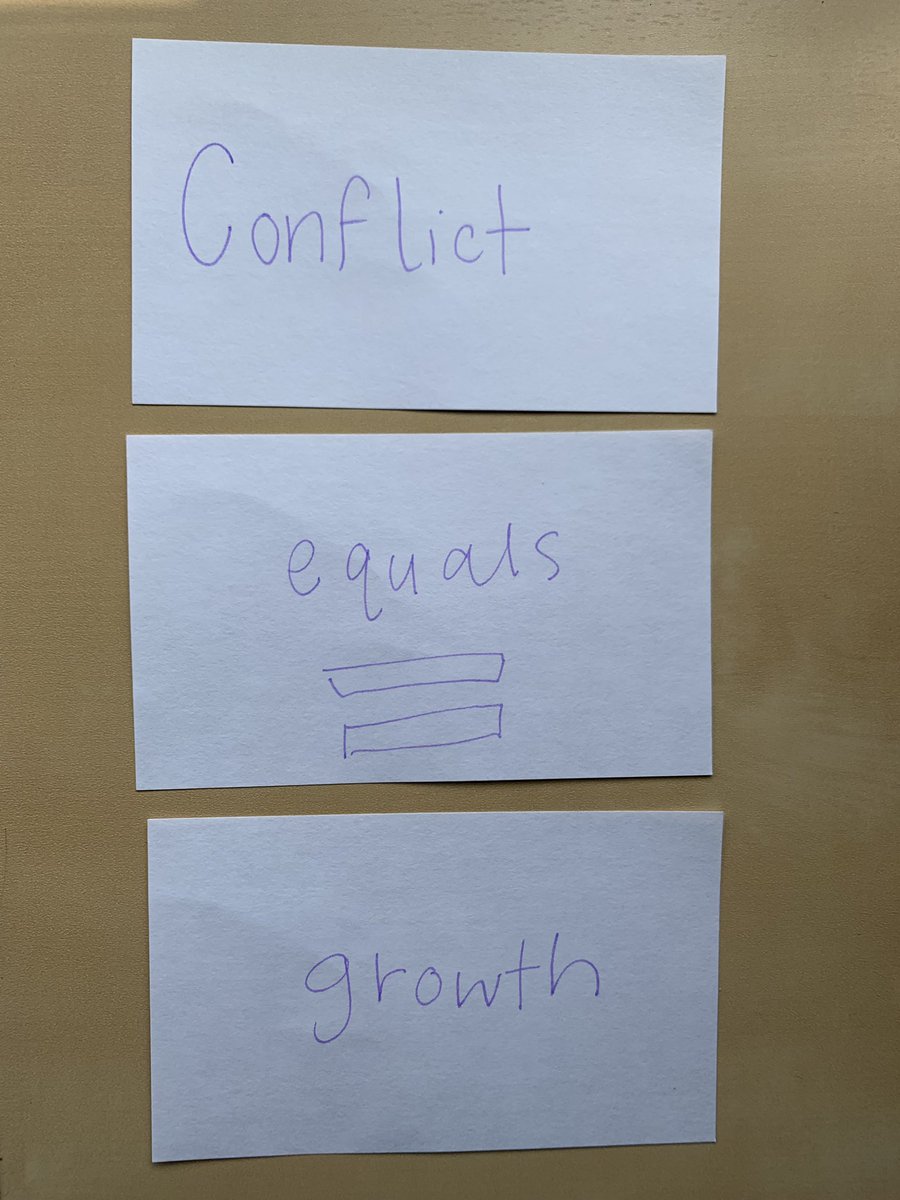 Conflict
equals
=
growth